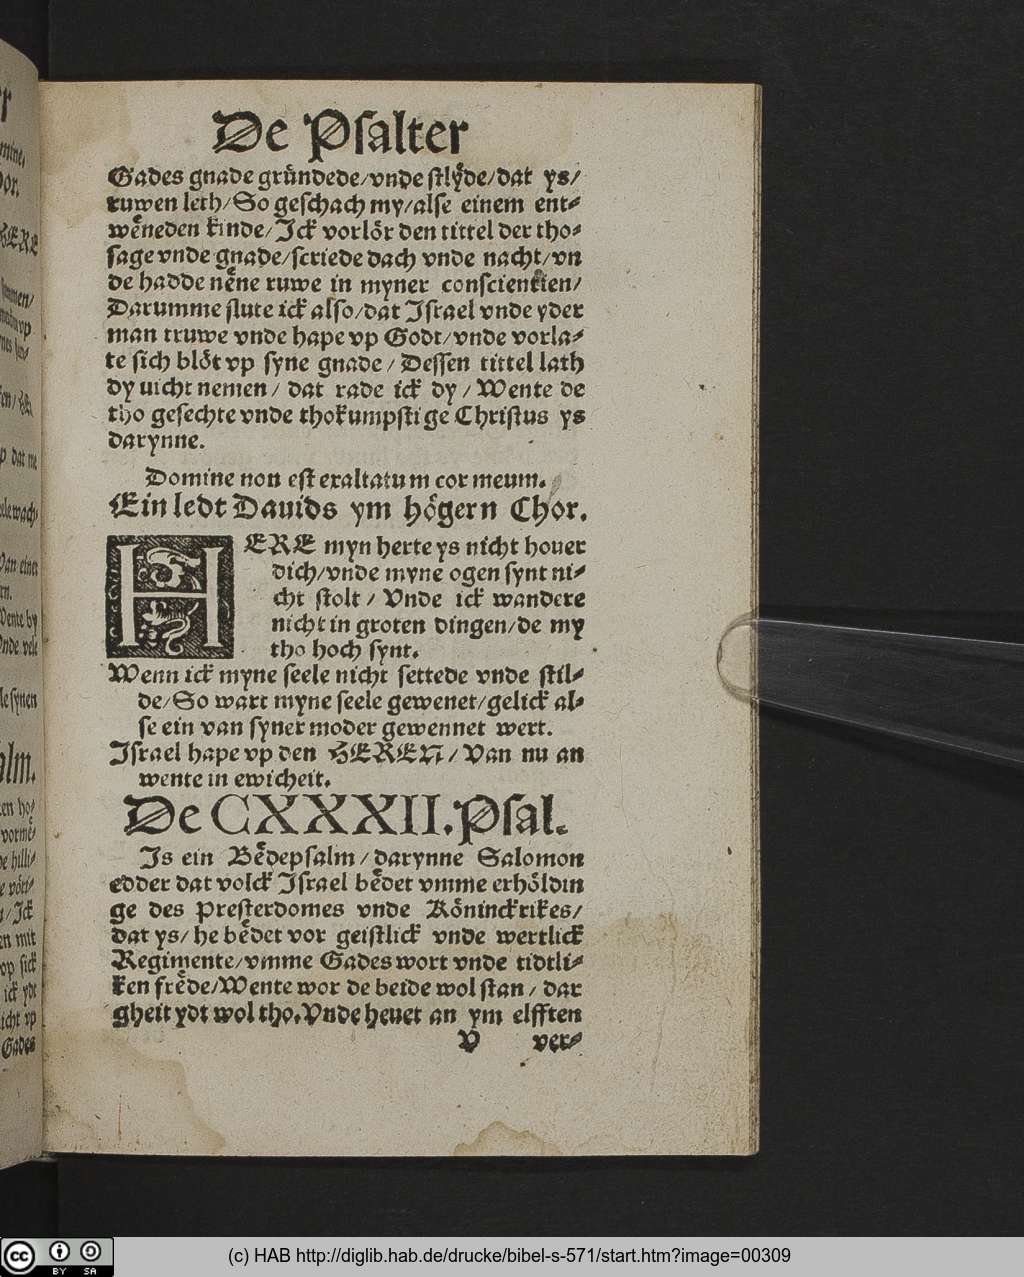 De Psalter
Gades gnade gründede/vnde stlyde/dat ys/
ruwen leth/So geschach my/alse einem ent⸗
wēneden kinde/Ick vorlör den tittel der tho⸗
sage vnde gnade/scriede dach vnde nacht/vn
de hadde nēne ruwe in myner conscientien/
Darumme slute ick also/dat Israel vnde yder
man truwe vnde hape vp Godt/vnde vorla⸗
te sich blöt vp syne gnade/Dessen tittel lath
dy nicht nemen/dat rade ick dy/Wente de
tho gesechte vnde thokumpstige Christus ys
darynne.
Domine non est exaltatum cor meum.
Ein ledt Dauids ym högern Chor.
HERE myn herte ys nicht houer
dich/vnde myne ogen synt ni⸗
cht stolt/Vnde ick wandere
nicht in groten dingen/de my
tho hoch synt.
Wenn ick myne seele nicht settede vnde stil⸗
de/So wart myne seele gewenet/gelick al⸗
se ein van syner moder gewennet wert.
Israel hape vp den HEREN/Van nu an
wente in ewicheit.
De CXXXII. Psal.
Is ein Bēdepsalm/darynne Salomon
edder dat volck Israel bēdet vmme erhöldin
ge des Presterdomes vnde Köninckrikes/
dat ys/he bēdet vor geistlick vnde wertlick
Regimente/vmme Gades wort vnde tidtli⸗
ken frēde/Wente wor de beide wol stan/dar
gheit ydt wol tho. Vnde heuet an ym elfften
V ver⸗
(c) HAB http://diglib.hab.de/drucke/bibel-s-571/start.htm?image=00309
cc BY SA